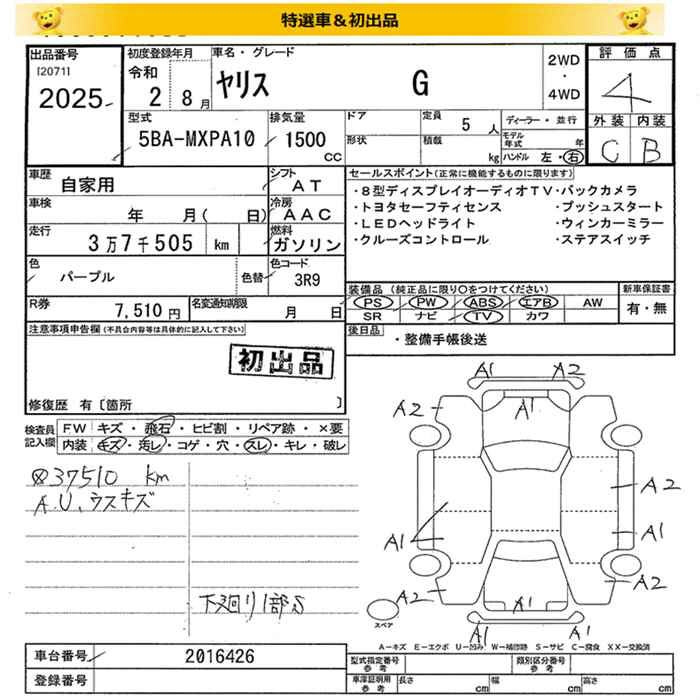 特選車＆初出品
出品番号
[2071]
2025
初度登録年月
令和
2 8月
車名・グレード
ヤリス G
2WD
・
4WD
評価点
4
外装 内装
C B
型式
5BA-MXPA10
排気量
1500
CC
ドア
形状
定員
5人
積載
kg
ディーラー・並行
モデル年式 年
ハンドル 左・右
車歴
自家用
シフト
AT
車検
年 月( 日)
冷房
AAC
走行
3万7千505 km
燃料
ガソリン
色
パープル
色替
色コード
3R9
R券
7,510円
名変通知期限
月 日
セールスポイント(正常に機能するものに限ります)
・8型ディスプレイオーディオTV・バックカメラ
・トヨタセーフティセンス ・プッシュスタート
・LEDヘッドライト ・ウィンカーミラー
・クルーズコントロール ・ステアスイッチ
装備品(純正品に限り○をつけてください)
PS PW ABS エアB AW
SR ナビ TV カワ
新車保証書
有・無
後日品
・整備手帳後送
注意事項申告欄(不具合内容等は具体的に記入して下さい)
初出品
修復歴 有〔箇所 〕
検査員
記入欄
FW キズ・飛石・ヒビ割・リペア跡・×要
内装 キズ・汚レ・コゲ・穴・スレ・キレ・破レ
37510 km
A.U.ウスキズ
下廻り1部S
A1 A2
A2 A1
A2
A1 A1
A2 A1 A2
A1 A1
スペア
A－キズ E－エクボ U－凹み W－補修跡 S－サビ C－腐食 XX－交換済
車台番号
2016426
登録番号
型式指定番号
参考
類別区分番号
参考
車庫証明用
参考
長さ cm 幅 cm 高さ cm